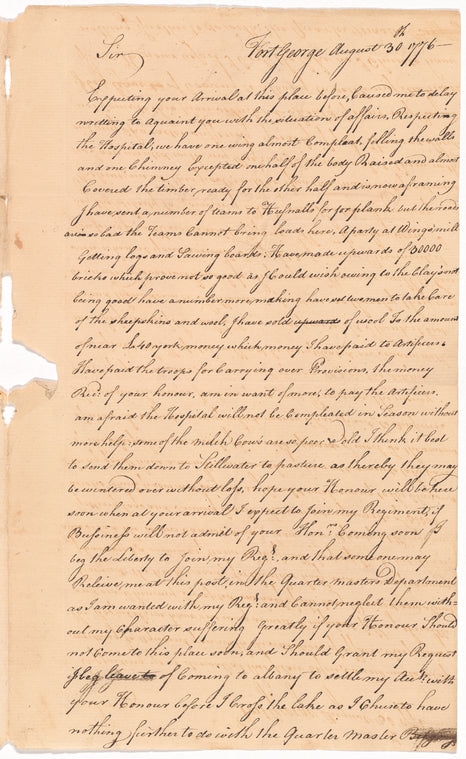 Fort George August 30th 1776—
Sir
Expecting your Arrival at this place before, Caused me to delay
writting to Aquaint you with the situation of affairs, Respecting
the Hospital, we have one wing almost Compleat, filling the walls
and one Chimney Excepted one half of the body Raised and almost
Covered the timber ready for the other half and is now a framing
I have sent a number of teams to for plank but the roads
are so bad the Teams Cannot bring loads here, A party at Wings mill
Getting logs and Sawing boards; Have made upwards of 30000
bricks which prove not so good as I Could wish owing to the Clay not
being good have a number more making have set two men to take Care
of the sheepskins and wool, I have sold upwards of wool To the amount
of near £40 york money which money I have paid to Artificers
Have paid the troops for Carrying over Provisions, the money
Recd. of your honour, am in want of more, to pay the Artificers
am afraid the Hospital will not be Compleated in Season without
more help: some of the milch Cows are so poor & old I think it best
to send them down to Stillwater to pasture as thereby they may
be wintered over without loss, hope your Honour will be here
soon when at your arrival I expect to join my Regiment, if
Bussiness will not admit of your Honrs. Coming soon I
beg the Liberty to join my Regt. and that some one may
Releive me at this post, in the Quarter masters Department
as I am wanted with my Regt. and Cannot neglect them with=
out my Character suffering Greatly if your Honour Should
not Come to this place soon, and Should Grant my Request
I beg leave to of Coming to albany to settle my Acct. with
your Honour before I Cross the lake as I Chuse to have
nothing further to do with the Quarter Master